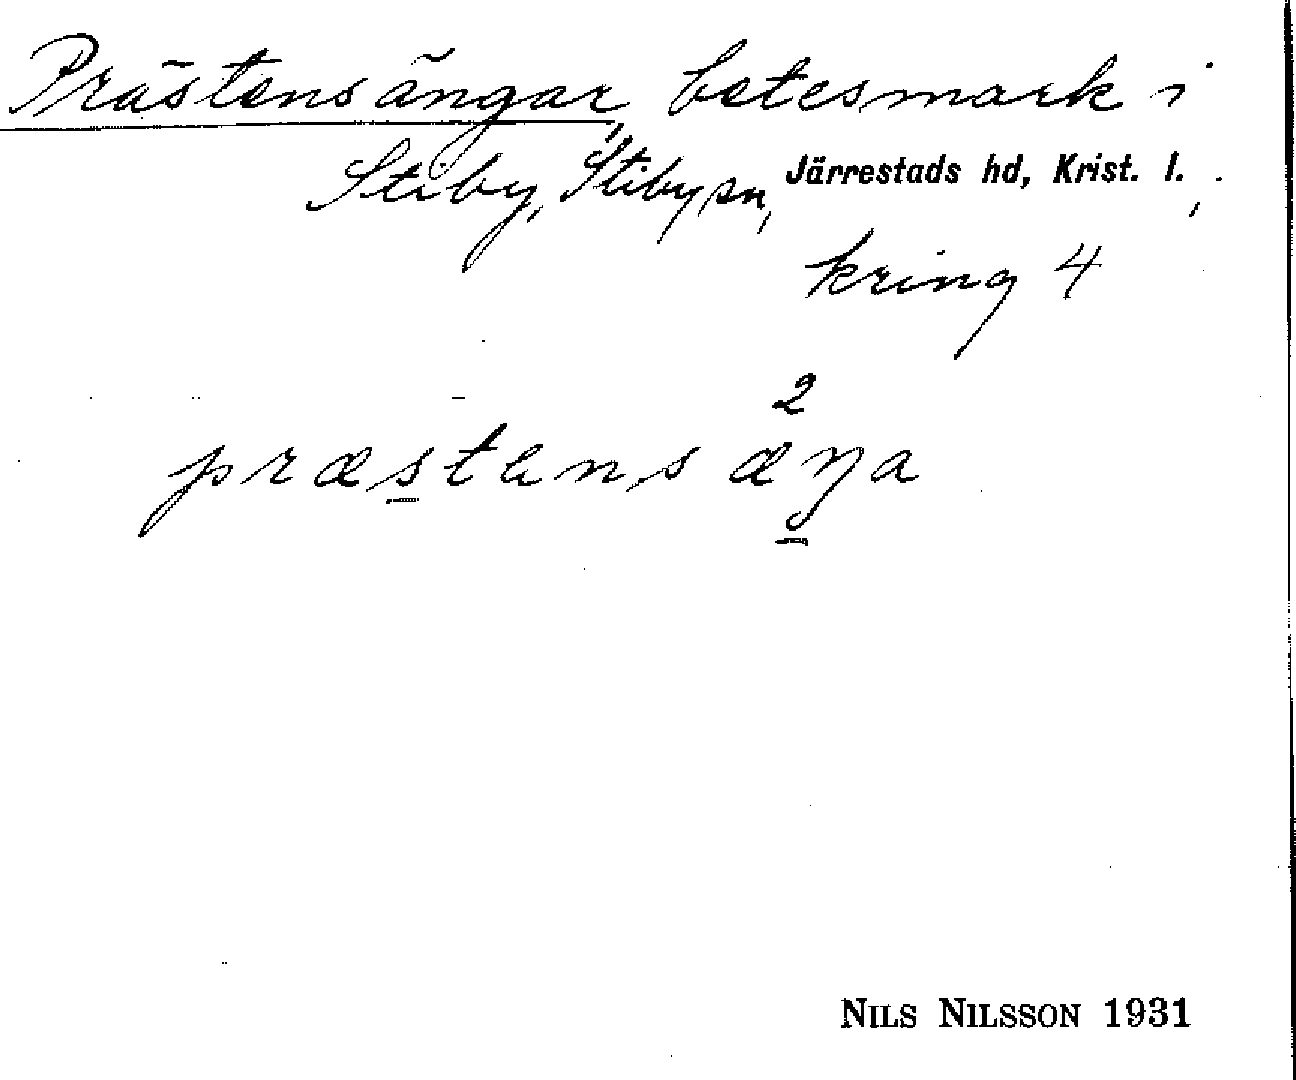 Prästensängar, betesmark i
Stiby, Stiby sn, Järrestads hd, Krist. l.,
kring 4
2
præstens æŋa
NILS NILSSON 1931